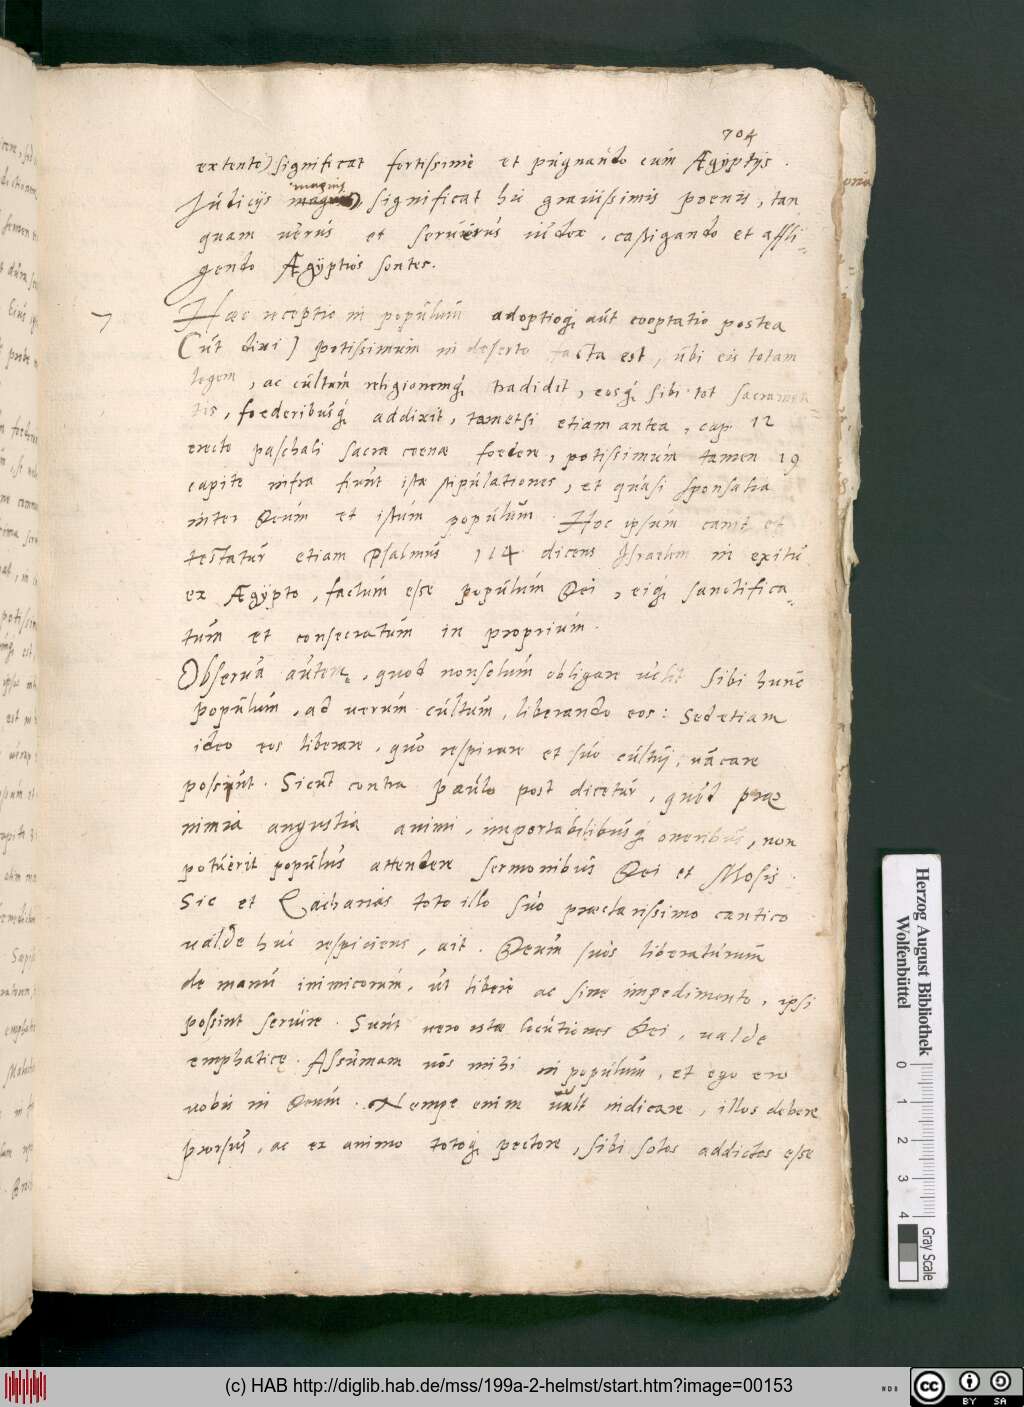 704
extente) significat fortissime et pugnando cum Ægyptijs.
Judicijs magnis, significat hic grauissimis poenis, tan
quam uerus et seuerus iudex, castigando et affli-
gendo Ægyptios sontes.
7 Haec receptio in populum adoptioq́ aut cooptatio postea
(ut dixi) potissimum in deserto facta est, ubi eis totam
legem, ac cultum religionemq́ tradidit, eosq́ sibi tot sacramen=
tis, foederibusq́ addixit, tametsi etiam antea, cap. 12
erecto paschali sacrae coenae foedere, potissimum tamen 19
capite infra fiunt istae stipulationes, et quasi sponsalia
inter Deum et istum populum. Hoc ipsum canit et
testatur etiam Psalmus 114 dicens Israelem in exitu
ex Ægypto, factum esse populum Dei, eiq́ sanctifica-
tum et consecratum in proprium.
Obserua autem, quod non solum obligare uelit sibi hunc
populum, ad uerum cultum, liberando eos: Sed etiam
ideo eos liberare, quo respirare et suo cultui, uacare
possint. Sicut contra paulo post dicetur, quod prae
nimia angustia animi, importabilibusq́ oneribus, non
potuerit populus attendere sermonibus Dei et Mosis.
Sic et Zacharias toto illo suo praeclarissimo cantico
ualde huc respiciens, ait. Deum suos liberaturum
de manu inimicorum, ut libere ac sine impedimento, ipsi
possint seruire. Sunt uero istae locutiones Dei, ualde
emphaticę. Assumam uos mihi in populum, et ego ero
uobis in Deum. Nempe enim uult indicare, illos debere
prorsus, ac ex animo totoq́ pectore, sibi solos addictos esse
Herzog August Bibliothek
Wolfenbüttel
0 1 2 3 4
Gray Scale
(c) HAB http://diglib.hab.de/mss/199a-2-helmst/start.htm?image=00153
cc BY SA